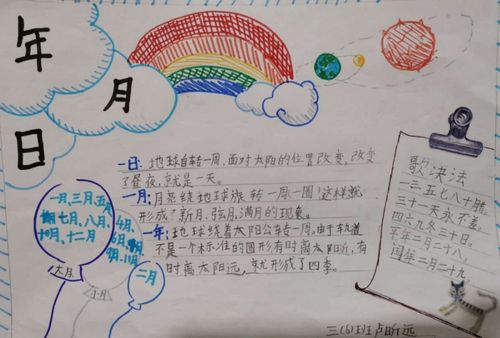 年
月
日
一日：地球自转一周，面对太阳的位置改变，改变
了昼夜，就是一天。
一月：月亮绕地球旋转一周一圈这样就
形成了新月，弦月，满月的现象。
一年：地球绕着太阳公转一周。由于轨道
不是一个标准的圆形有时离太阳近，有
时离太阳远，就形成了四季。
一月、三月、五月
七月、八月、
十月、十二月
大月
4月、
6月、
9月、11月
小月
二月
歌决法
一三五七八十腊，
三十一天永不差，
四六九冬三十日，
平年二月二十八，
闰年二月二十九
三(6)班卢昕远